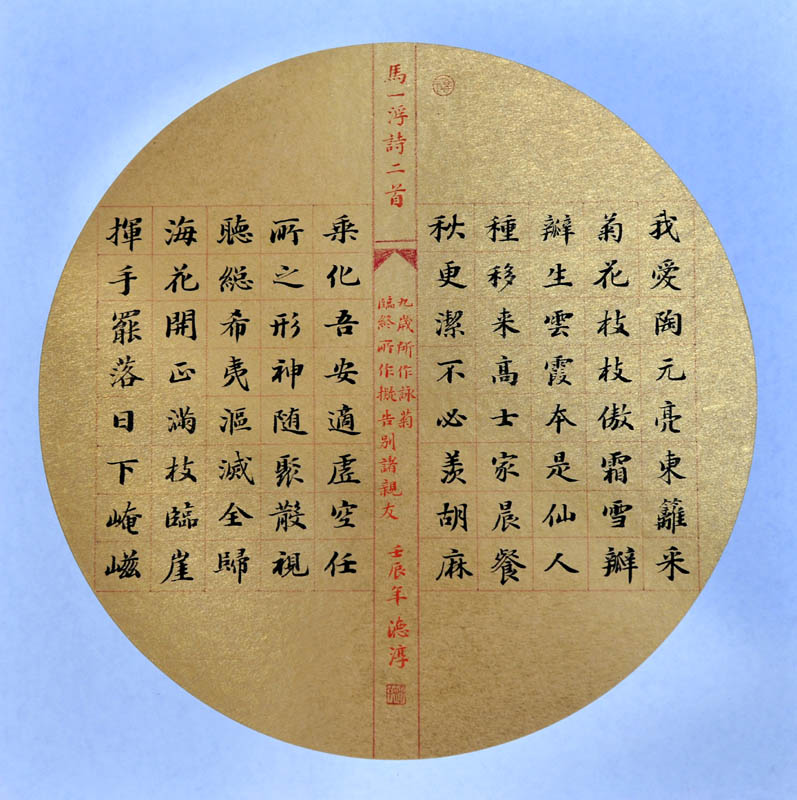 我愛陶元亮東籬采
菊花枝枝傲霜雪瓣
瓣生雲霞本是仙人
種移来高士家晨餐
秋更潔不必羨胡麻
馬一浮詩二首
九歲所作詠菊
臨終所作擬告别諸親友
壬辰年 德淳
乘化吾安適虚空任
所之形神随聚散視
聽緫希夷漚滅全歸
海花開正滿枝臨崖
揮手罷落日下崦嵫